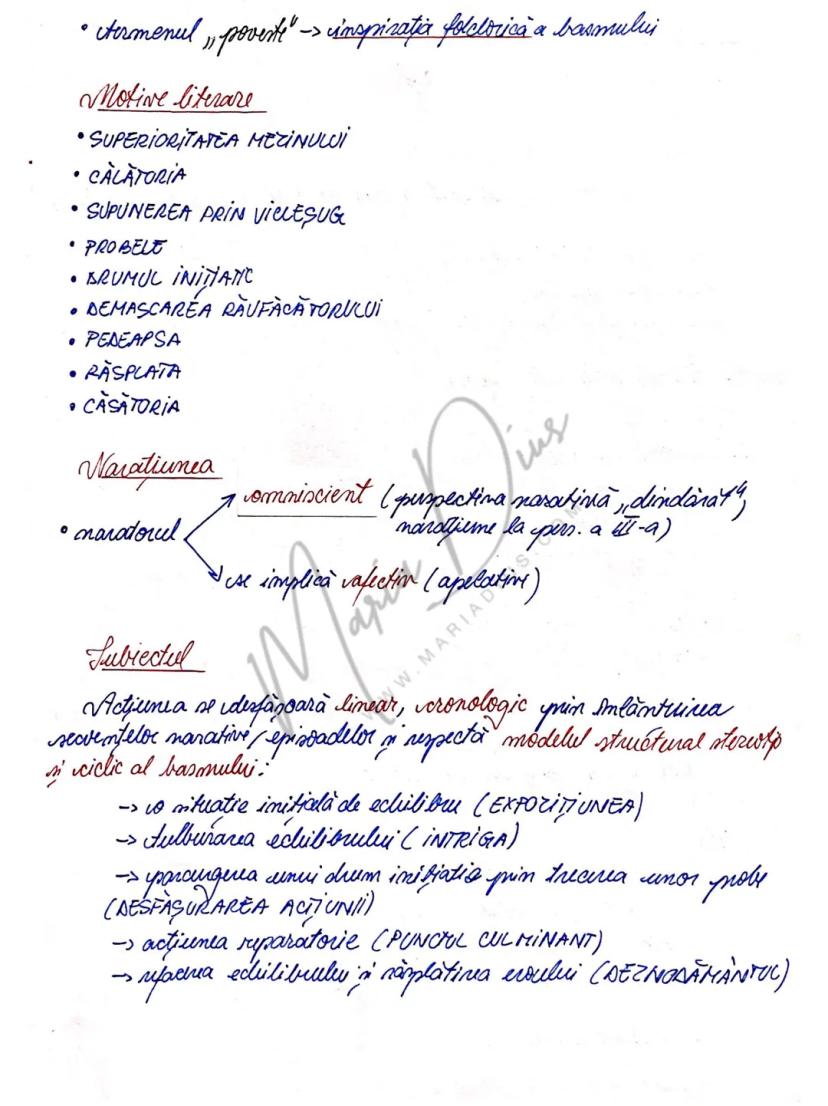 • termenul „poveste" → inspirația folclorică a basmului
Motive literare
• SUPERIORITATEA MEZINULUI
• CĂLĂTORIA
• SUPUNEREA PRIN VICLEȘUG
• PROBELE
• DRUMUL INIȚIATIC
• DEMASCAREA RĂUFĂCĂTORULUI
• PEDEAPSA
• RĂSPLATA
• CĂSĂTORIA
Narațiunea
omniscient (perspectiva narativă „dindărăt",
narațiune la pers. a III-a)
• naratorul
se implică afectiv (apelative)
Maria Dius
WWW.MARIADIUS.COM
Subiectul
Acțiunea se desfășoară linear, cronologic prin înlănțuirea
secvențelor narative/episoadelor și respectă modelul structural stereotip
și ciclic al basmului:
→ o situație inițială de echilibru (EXPOZIȚIUNEA)
→ tulburarea echilibrului (INTRIGA)
→ parcurgerea unui drum inițiatic prin trecerea unor probe
(DESFĂȘURAREA ACȚIUNII)
→ acțiunea reparatorie (PUNCTUL CULMINANT)
→ refacerea echilibrului și răsplătirea eroului (DEZNODĂMÂNTUL)